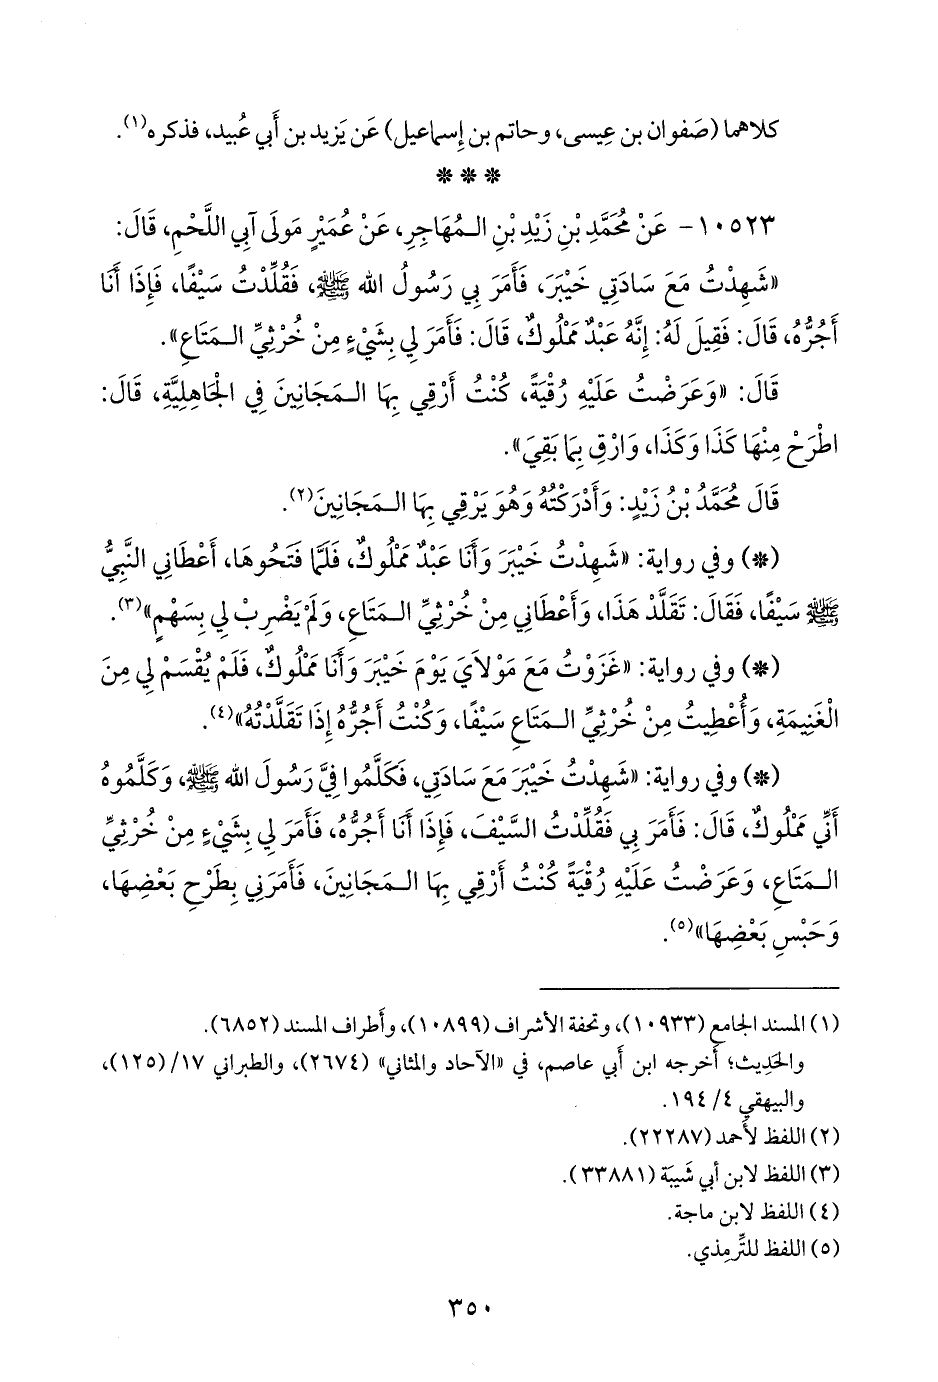 كلاهما (صَفوان بن عِيسى، وحاتم بن إسماعيل) عَن يَزيد بن أَبي عُبيد، فذكره(١).
* * *
١٠٥٢٣- عَنْ مُحَمَّدِ بْنِ زَيْدِ بْنِ الـمُهَاجِرِ، عَنْ عُمَيْرٍ مَولَى آبِي اللَّحْمِ، قَالَ:
«شَهِدْتُ مَعَ سَادَتِي خَيْبَرَ، فَأَمَرَ بِي رَسُولُ الله ﷺ، فَقُلِّدْتُ سَيْفًا، فَإِذَا أَنَا
أَجُرُّهُ، قَالَ: فَقِيلَ لَهُ: إِنَّهُ عَبْدٌ مَمْلُوكٌ، قَالَ: فَأَمَرَ لِي بِشَيْءٍ مِنْ خُرْثِيِّ الـمَتَاعِ».
قَالَ: «وَعَرَضْتُ عَلَيْهِ رُقْيَةً، كُنْتُ أَرْقِي بِهَا الـمَجَانِينَ فِي الجَاهِلِيَّةِ، قَالَ:
اطْرَحْ مِنْهَا كَذَا وَكَذَا، وَارْقِ بِمَا بَقِيَ».
قَالَ مُحَمَّدُ بْنُ زَيْدٍ: وَأَدْرَكْتُهُ وَهُوَ يَرْقِي بِهَا الـمَجَانِينَ(٢).
(*) وفي رواية: «شَهِدْتُ خَيْبَرَ وَأَنَا عَبْدٌ مَمْلُوكٌ، فَلَمَّا فَتَحُوهَا، أَعْطَانِي النَّبِيُّ
ﷺ سَيْفًا، فَقَالَ: تَقَلَّدْ هَذَا، وَأَعْطَانِي مِنْ خُرْثِيِّ الـمَتَاعِ، وَلَمْ يَضْرِبْ لِي بِسَهْمٍ»(٣).
(*) وفي رواية: «غَزَوْتُ مَعَ مَوْلَايَ يَوْمَ خَيْبَرَ وَأَنَا مَمْلُوكٌ، فَلَمْ يُقْسَمْ لِي مِنَ
الْغَنِيمَةِ، وَأُعْطِيتُ مِنْ خُرْثِيِّ الـمَتَاعِ سَيْفًا، وَكُنْتُ أَجُرُّهُ إِذَا تَقَلَّدْتُهُ»(٤).
(*) وفي رواية: «شَهِدْتُ خَيْبَرَ مَعَ سَادَتِي، فَكَلَّمُوا فِيَّ رَسُولَ الله ﷺ، وَكَلَّمُوهُ
أَنِّي مَمْلُوكٌ، قَالَ: فَأَمَرَ بِي فَقُلِّدْتُ السَّيْفَ، فَإِذَا أَنَا أَجُرُّهُ، فَأَمَرَ لِي بِشَيْءٍ مِنْ خُرْثِيِّ
الـمَتَاعِ، وَعَرَضْتُ عَلَيْهِ رُقْيَةً كُنْتُ أَرْقِي بِهَا الـمَجَانِينَ، فَأَمَرَنِي بِطَرْحِ بَعْضِهَا،
وَحَبْسِ بَعْضِهَا»(٥).
(١) المسند الجامع (١٠٩٣٣)، وتحفة الأشراف (١٠٨٩٩)، وأَطراف المسند (٦٨٥٢).
والحَدِيث؛ أخرجه ابن أَبي عاصم، في «الآحاد والمثاني» (٢٦٧٤)، والطبراني ١٧/ (١٢٥)،
والبيهقي ٤/ ١٩٤.
(٢) اللفظ لأحمد (٢٢٢٨٧).
(٣) اللفظ لابن أبي شَيبَة (٣٣٨٨١).
(٤) اللفظ لابن ماجة.
(٥) اللفظ للتِّرمِذي.
٣٥٠